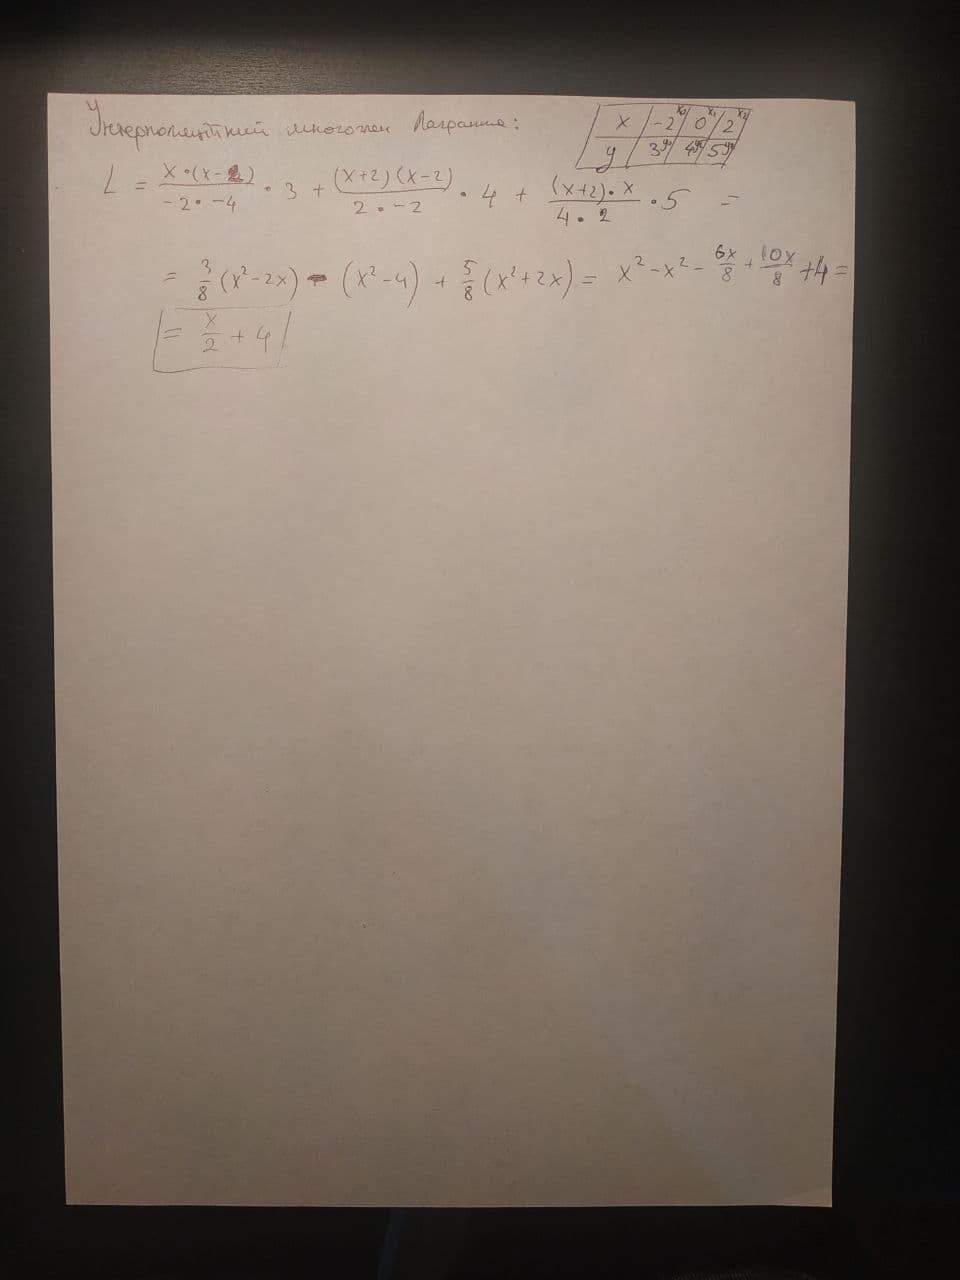 Интерполяционный многочлен Лагранжа:
x | -2 x₀ | 0 x₁ | 2 x₂
y | 3 y₀ | 4 y₁ | 5 y₂
L = x·(x-2)/(-2·-4) · 3 + (x+2)(x-2)/(2·-2) · 4 + (x+2)·x/(4·2) · 5 =
= 3/8 (x²-2x) - (x²-4) + 5/8 (x²+2x) = x²-x² - 6x/8 + 10x/8 + 4 =
= x/2 + 4